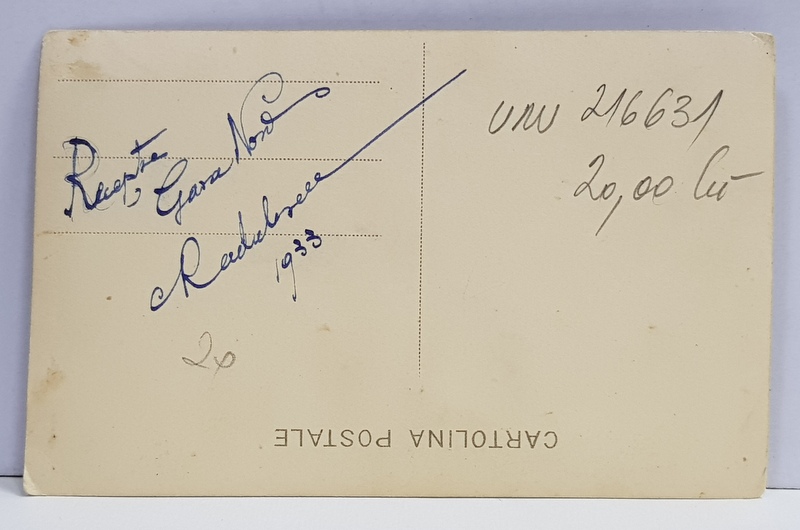 Recepția
Gara Nord
Radulescu
1933
20
UNU 216631
20,00 lei
CARTOLINA POSTALE